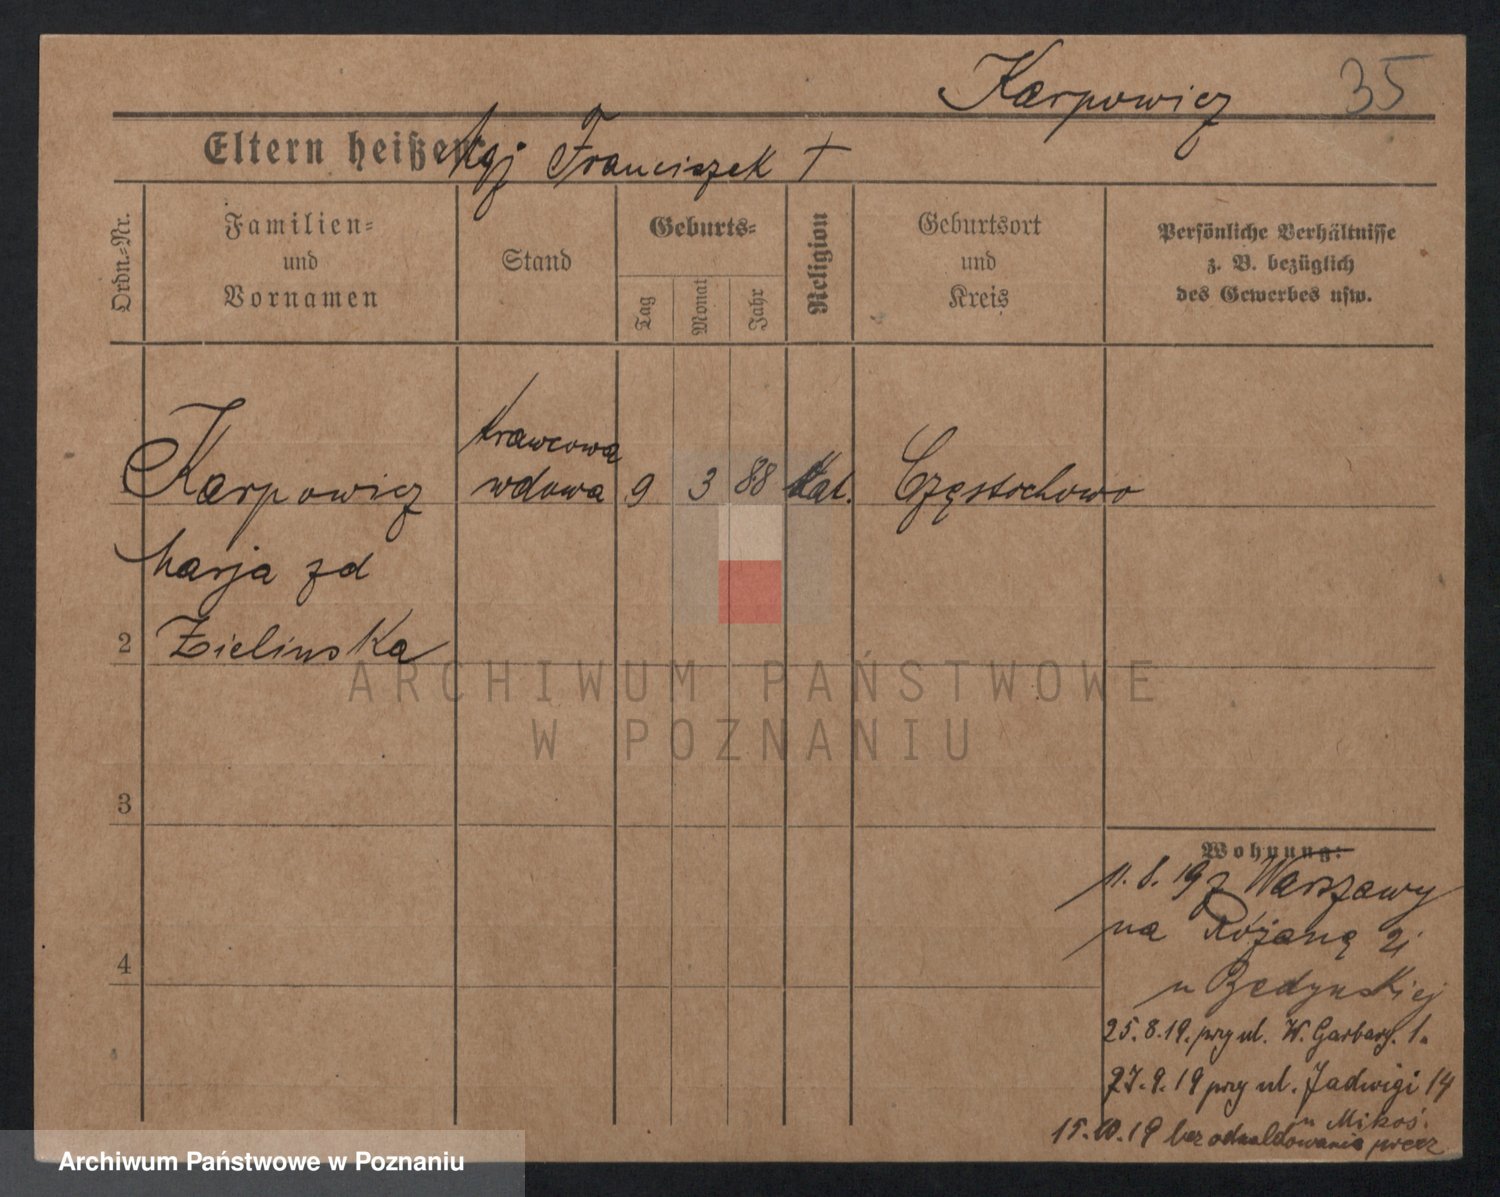 Karpowicz 35
Eltern heißen Mąż Franciszek †
Ordn.-Nr.
Familien-
und
Vornamen
Stand
Geburts-
Tag
Monat
Jahr
Religion
Geburtsort
und
Kreis
Persönliche Verhältnisse
z. B. bezüglich
des Gewerbes usw.
krawcowa
Karpowicz wdowa 9 3 88 Kat. Częstochowo
Marja zd
2 Zielinska
3
4
Wohnung:
11. 8. 19 z Warszawy
na Różaną 21
u Bedynskiej
25. 8. 19. przy ul. W. Garbary. 1.
27. 9. 19 przy ul. Jadwigi 14
u Mikoś.
15. 10. 19 bez odmeldowania precz
ARCHIWUM PAŃSTWOWE
W POZNANIU
Archiwum Państwowe w Poznaniu